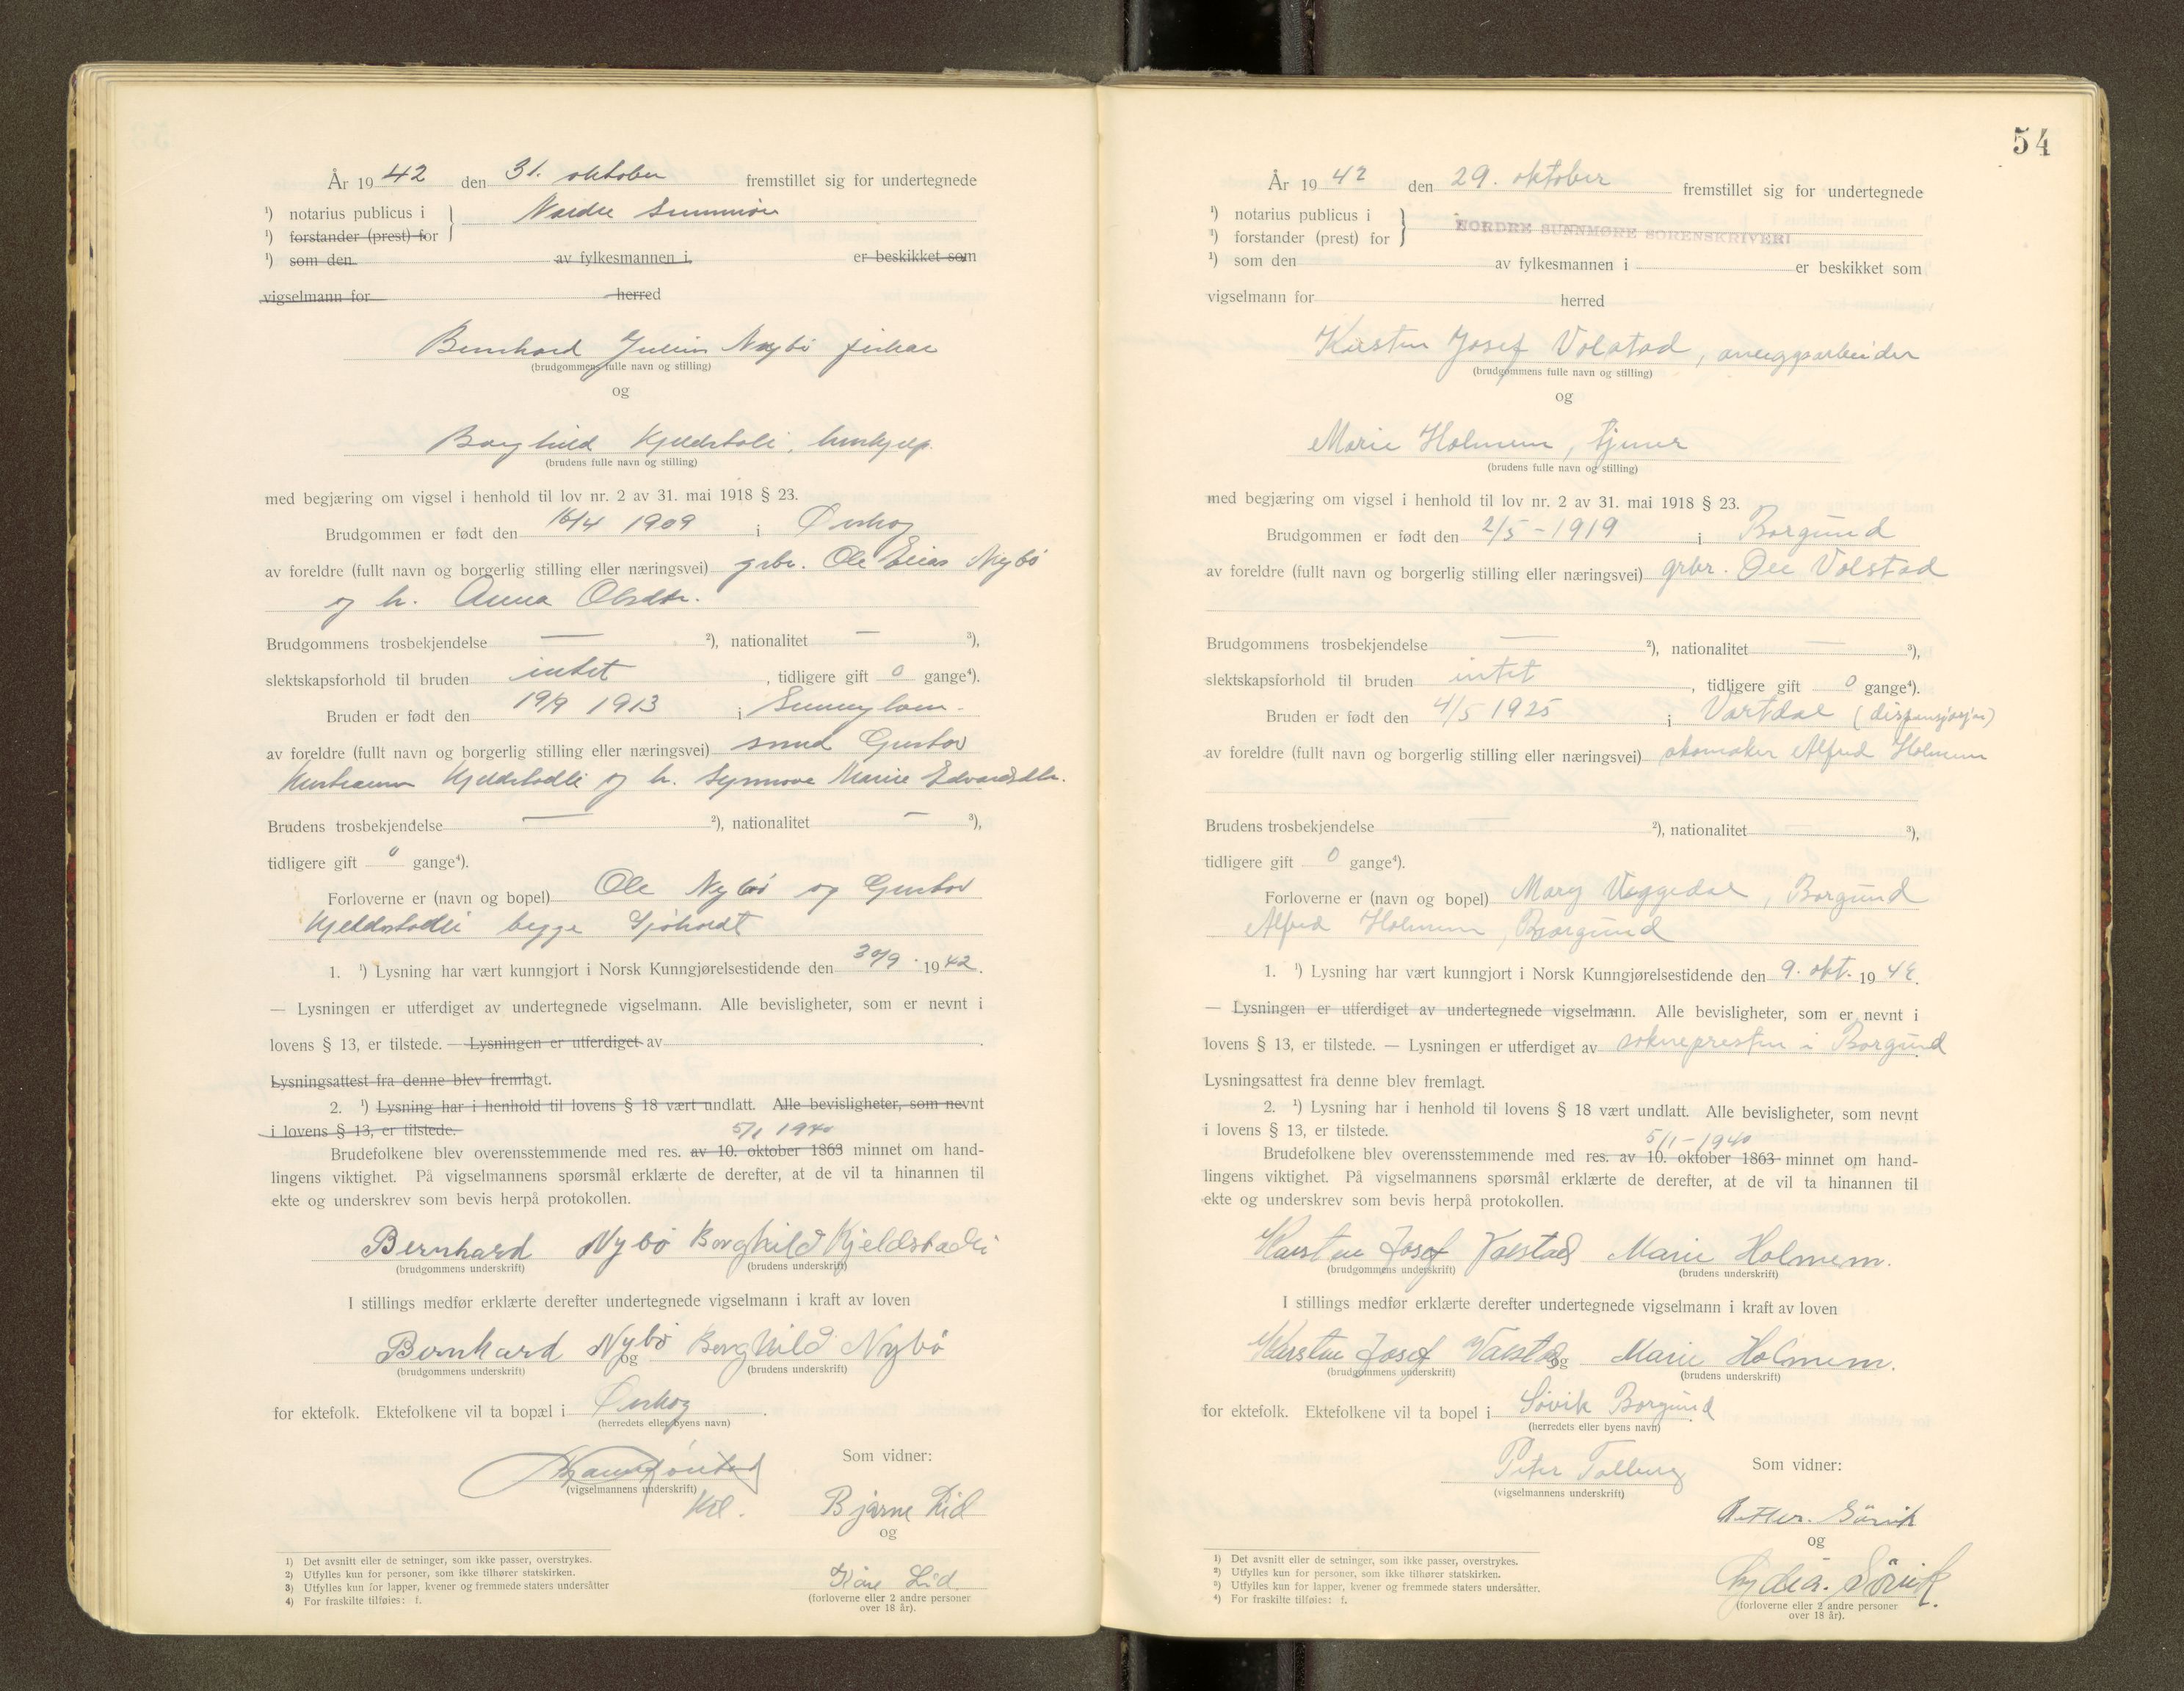 År 19 42 den 31. oktober fremstillet sig for undertegnede
¹) notarius publicus i
Nordre Sunnmøre
¹) forstander (prest) for
¹) som den av fylkesmannen i er beskikket som
vigselmann for herred
Bernhard Julius Nybö fisker
(brudgommens fulle navn og stilling)
og
Borghild Kjeldstadli, hushjelp.
(brudens fulle navn og stilling)
med begjæring om vigsel i henhold til lov nr. 2 av 31. mai 1918 § 23.
Brudgommen er født den 16/4 1909 i Ørskog
av foreldre (fullt navn og borgerlig stilling eller næringsvei) grbr. Ole Elias Nybö
og h. Anna Olsdtr.
Brudgommens trosbekjendelse — ²), nationalitet — ³),
slektskapsforhold til bruden intet, tidligere gift 0 gange⁴).
Bruden er født den 19/9 1913 i Sunnylven.
av foreldre (fullt navn og borgerlig stilling eller næringsvei) smed Gustav
Kjeldstadli og h. Synnove Marie Edvardsdtr.
Brudens trosbekjendelse — ²), nationalitet — ³),
tidligere gift 0 gange⁴).
Forloverne er (navn og bopel) Ole Nybö og Gustav
Kjeldstadli begge Sjöholdt
1. ¹) Lysning har vært kunngjort i Norsk Kunngjørelsestidende den 30/9. 1942.
— Lysningen er utferdiget av undertegnede vigselmann. Alle bevisligheter, som er nevnt i
lovens § 13, er tilstede. — Lysningen er utferdiget av
Lysningsattest fra denne blev fremlagt.
2. ¹) Lysning har i henhold til lovens § 18 vært undlatt. Alle bevisligheter, som nevnt
i lovens § 13, er tilstede. 5/1 1940
Brudefolkene blev overensstemmende med res. av 10. oktober 1863 minnet om hand-
lingens viktighet. På vigselmannens spørsmål erklærte de derefter, at de vil ta hinannen til
ekte og underskrev som bevis herpå protokollen.
Bernhard Nybö Borghild Kjeldstadli
(brudgommens underskrift) (brudens underskrift)
I stillings medfør erklærte derefter undertegnede vigselmann i kraft av loven
Bernhard Nybö og Borghild Nybö
(brudgommens underskrift) (brudens underskrift)
for ektefolk. Ektefolkene vil ta bopæl i Ørskog.
(herredets eller byens navn)
Som vidner:
(vigselmannens underskrift)
Bjarne Lid
og
Kåre Lid
(forloverne eller 2 andre personer
over 18 år).
1) Det avsnitt eller de setninger, som ikke passer, overstrykes.
2) Utfylles kun for personer, som ikke tilhører statskirken.
3) Utfylles kun for lapper, kvener og fremmede staters undersåtter
4) For fraskilte tilføies: f.
54
År 19 42 den 29. oktober fremstillet sig for undertegnede
¹) notarius publicus i
NORDRE SUNNMØRE SORENSKRIVERI
¹) forstander (prest) for
¹) som den av fylkesmannen i er beskikket som
vigselmann for herred
Karsten Josef Volstad, anleggsarbeider
(brudgommens fulle navn og stilling)
og
Marie Holmem, tjener
(brudens fulle navn og stilling)
med begjæring om vigsel i henhold til lov nr. 2 av 31. mai 1918 § 23.
Brudgommen er født den 2/5-1919 i Borgund
av foreldre (fullt navn og borgerlig stilling eller næringsvei) grbr. Ole Volstad
Brudgommens trosbekjendelse — ²), nationalitet — ³),
slektskapsforhold til bruden intet, tidligere gift 0 gange⁴).
Bruden er født den 4/5 1925 i Vartdal (dispensasjon)
av foreldre (fullt navn og borgerlig stilling eller næringsvei) skomaker Alfred Holmem
Brudens trosbekjendelse — ²), nationalitet — ³),
tidligere gift 0 gange⁴).
Forloverne er (navn og bopel) Mary Veggedal, Borgund
Alfred Holmem, Borgund
1. ¹) Lysning har vært kunngjort i Norsk Kunngjørelsestidende den 9. okt. 1942.
— Lysningen er utferdiget av undertegnede vigselmann. Alle bevisligheter, som er nevnt i
lovens § 13, er tilstede. — Lysningen er utferdiget av soknepresten i Borgund
Lysningsattest fra denne blev fremlagt.
2. ¹) Lysning har i henhold til lovens § 18 vært undlatt. Alle bevisligheter, som nevnt
i lovens § 13, er tilstede. 5/1-1940
Brudefolkene blev overensstemmende med res. av 10. oktober 1863 minnet om hand-
lingens viktighet. På vigselmannens spørsmål erklærte de derefter, at de vil ta hinannen til
ekte og underskrev som bevis herpå protokollen.
Karsten Josef Volstad Marie Holmem.
(brudgommens underskrift) (brudens underskrift)
I stillings medfør erklærte derefter undertegnede vigselmann i kraft av loven
Karsten Josef Valstad og Marie Holmem.
(brudgommens underskrift) (brudens underskrift)
for ektefolk. Ektefolkene vil ta bopel i Sövik Borgund
(herredets eller byens navn)
Peter Tolberg Som vidner:
(vigselmannens underskrift)
Sövik
og
Lydia. Sövik.
(forloverne eller 2 andre personer
over 18 år).
¹) Det avsnitt eller de setninger, som ikke passer, overstrykes.
²) Utfylles kun for personer, som ikke tilhører statskirken.
³) Utfylles kun for lapper, kvener og fremmede staters undersåtter.
⁴) For fraskilte tilføies: f.